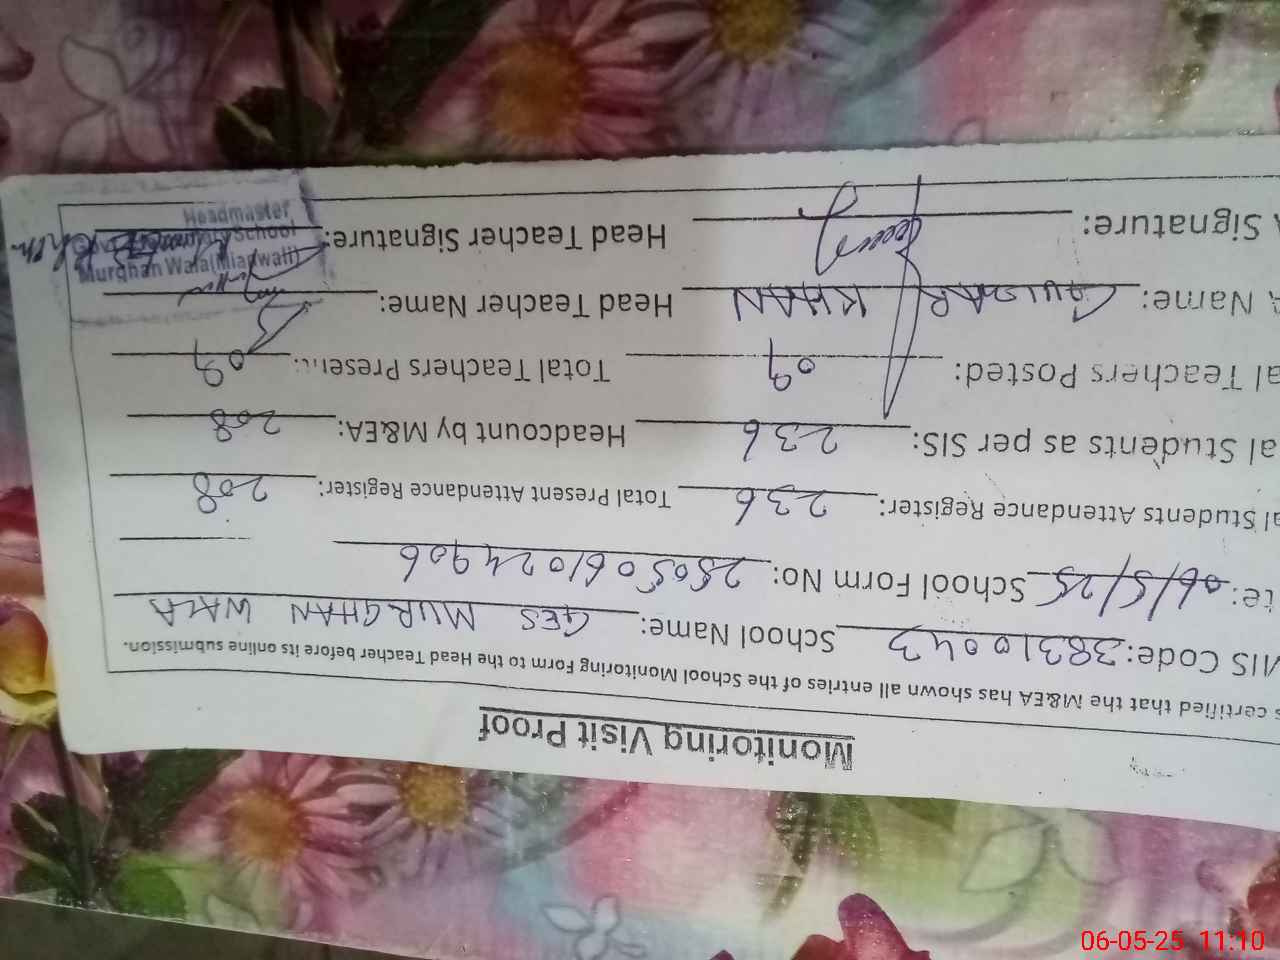 Monitoring Visit Proof
certified that the M&EA has shown all entries of the School Monitoring Form to the Head Teacher before its online submission.
MIS Code: 38310043 School Name: GES MURGHAN WALA
te: 06/5/25 School Form No: 2505061024906
al Students Attendance Register: 236 Total Present Attendance Register: 208
al Students as per SIS: 236 Headcount by M&EA: 208
al Teachers Posted: 09 Total Teachers Present: 09
A Name: GULZAR KHAN Head Teacher Name:
A Signature: Head Teacher Signature:
Headmaster
School
Murghan Wala(Mianwali)
06-05-25 11:10